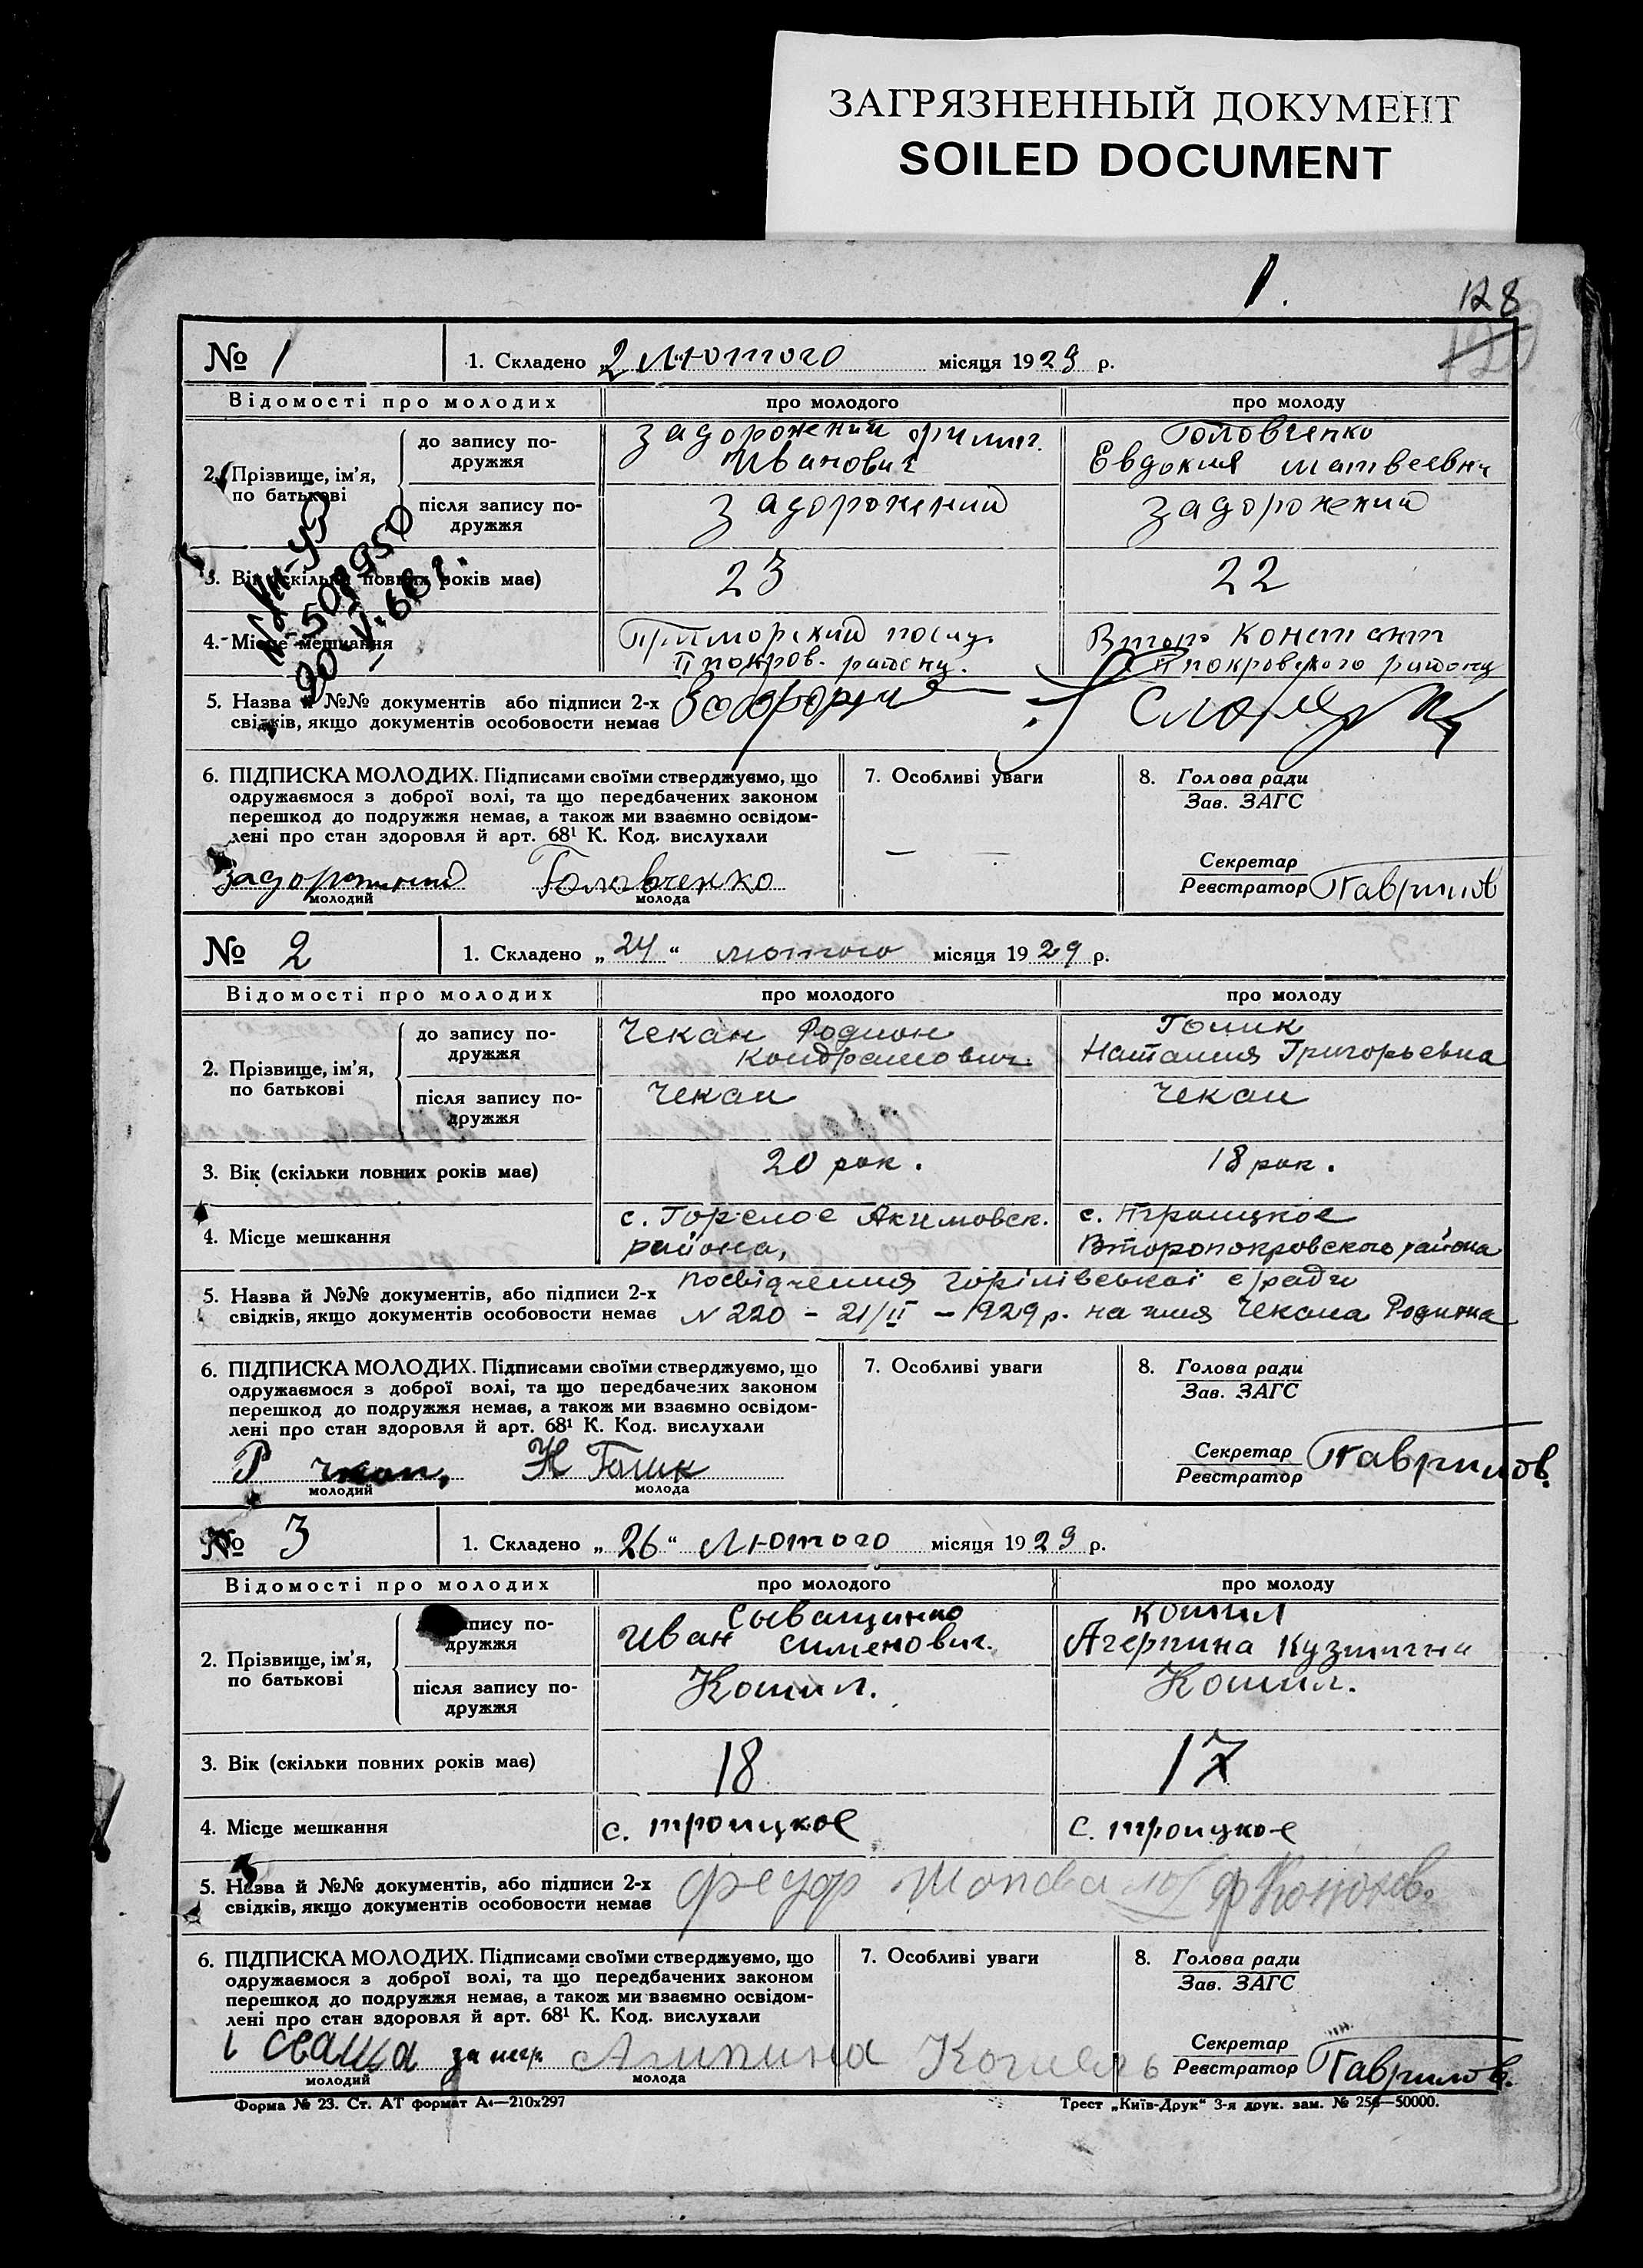 ЗАГРЯЗНЕННЫЙ ДОКУМЕНТ
SOILED DOCUMENT
1.
128
№ 1
1. Складено „2“ Лютого місяця 1929 р.
Відомості про молодих
про молодого
про молоду
2. Прізвище, ім'я, по батькові
до запису подружжя
Задорожний
Иванович
Головченко
Евдокия Матвеевн
після запису подружжя
Задорожений
Задорожений
3. Вік (скільки повних років має)
23
22
4. Місце мешкання
Приморский
II покров. району.
Втор Констант
II покровского району
5. Назва й №№ документів або підписи 2-х
свідків, якщо документів особовости немає
6. ПІДПИСКА МОЛОДИХ. Підписами своїми стверджуємо, що
одружаємося з доброї волі, та що передбачених законом
перешкод до подружжя немає, а також ми взаємно освідом-
лені про стан здоров'я й арт. 68¹ К. Код. вислухали
Задорожний
Головченко
молодий
молода
7. Особливі уваги
— —
8. Голова ради
Зав. ЗАГС
Секретар
Реєстратор Гаврилов
№ 2
1. Складено „24“ лютого місяця 1929 р.
Відомості про молодих
про молодого
про молоду
2. Прізвище, ім'я,
по батькові
до запису по-
дружжя
Чекан Родион
Кондратович
Голик
Наталия Григорьевна
після запису по-
дружжя
Чекан
Чекан
3. Вік (скільки повних років має)
20 рок.
18 рок.
4. Місце мешкання
с. Горелое Акимовск.
района,
с. Троицкое
Второпокровского района
5. Назва й №№ документів, або підписи 2-х
свідків, якщо документів особовости немає
посвідчення Горілівської с/ради
N 220 – 21/II – 1929 р. на имя Чекана Родиона
6. ПІДПИСКА МОЛОДИХ. Підписами своїми стверджуємо, що
одружаємося з доброї волі, та що передбачених законом
перешкод до подружжя немає, а також ми взаємно освідом-
лені про стан здоровля й арт. 68¹ К. Код. вислухали
Р Чкан,
Н Голик
молодий
молода
7. Особливі уваги
8. Голова ради
Зав. ЗАГС
Секретар
Реєстратор Гаврилов.
№ 3
1. Складено „26“ Лютого місяця 1929 р.
Відомості про молодих
про молодого
про молоду
2. Прізвище, ім'я,
по батькові
запису по-
дружжя
Сыващинко
Иван Сименович.
Кошил
Агерпина Кузмична
після запису по-
дружжя
Кошил.
Кошил.
3. Вік (скільки повних років має)
18
17
4. Місце мешкання
с. троицкое
с. троицкое
5. Назва й №№ документів, або підписи 2-х
свідків, якщо документів особовости немає
Федор Шаповалов
6. ПІДПИСКА МОЛОДИХ. Підписами своїми стверджуємо, що
одружаємося з доброї волі, та що передбачених законом
перешкод до подружжя немає, а також ми взаємно освідом-
лені про стан здоровля й арт. 68¹ К. Код. вислухали
і сваща
Агипина
молодий
молода
7. Особливі уваги
8. Голова ради
Зав. ЗАГС
Секретар
Реєстратор Гаврилов.
Форма № 23. Ст. АТ формат А4—210х297
Трест „Київ-Друк“ 3-я друк. зам. № 256—50000.